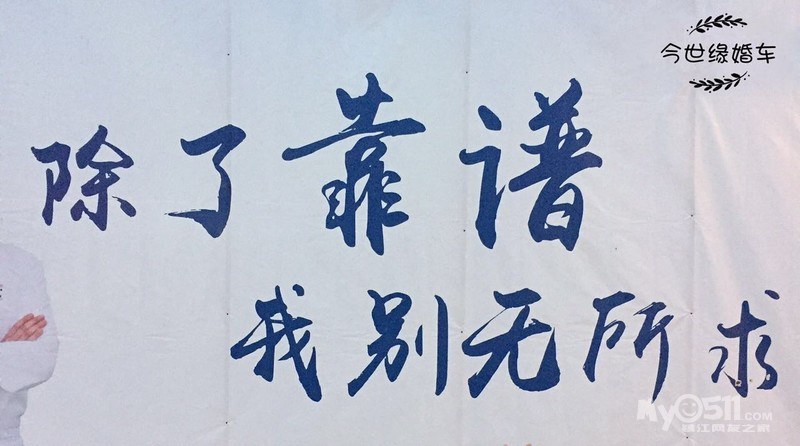 今世缘婚车
除了靠谱
我别无所求
My0511.COM
镇江网友之家